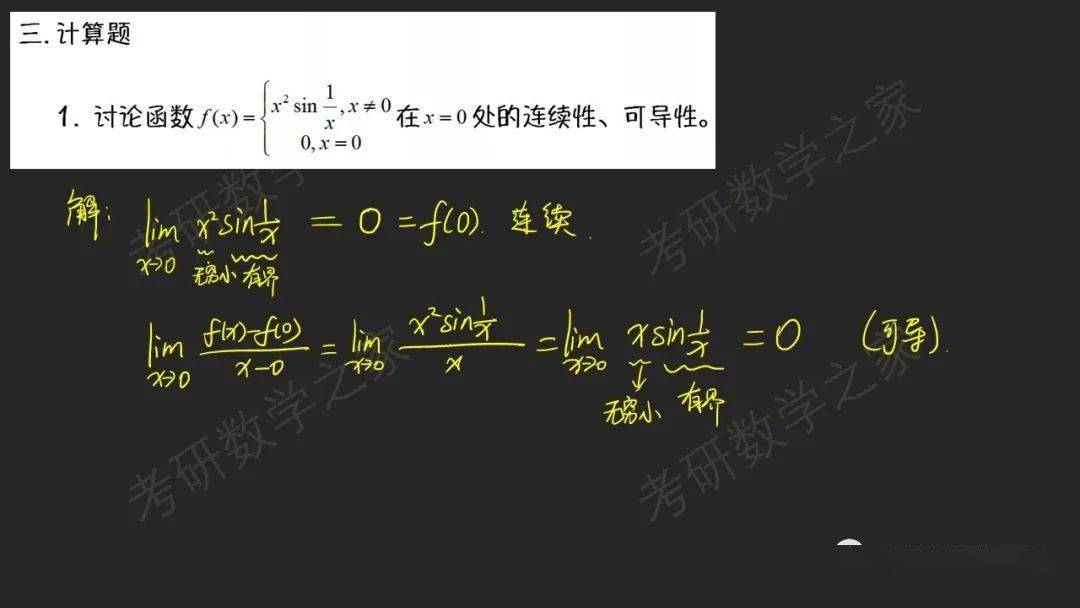 三.计算题
1. 讨论函数 f(x)={x² sin 1/x, x≠0
0, x=0 在 x=0 处的连续性、可导性。
解: lim x→0 x² sin 1/x = 0 = f(0). 连续.
无穷小 有界
lim x→0 (f(x)-f(0))/(x-0) = lim x→0 (x² sin 1/x)/x = lim x→0 x sin 1/x = 0 (可导).
无穷小 有界
考研数学之家
考研数学之家
考研数学之家
考研数学之家